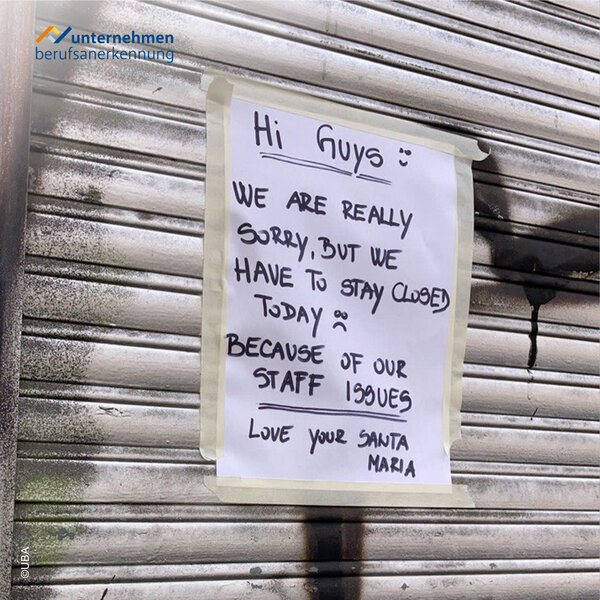 unternehmen
berufsanerkennung
Hi Guys :)
WE ARE REALLY
SORRY, BUT WE
HAVE TO STAY CLOSED
TODAY :(
BECAUSE OF OUR
STAFF ISSUES
LOVE YOUR SANTA
MARIA
©UBA